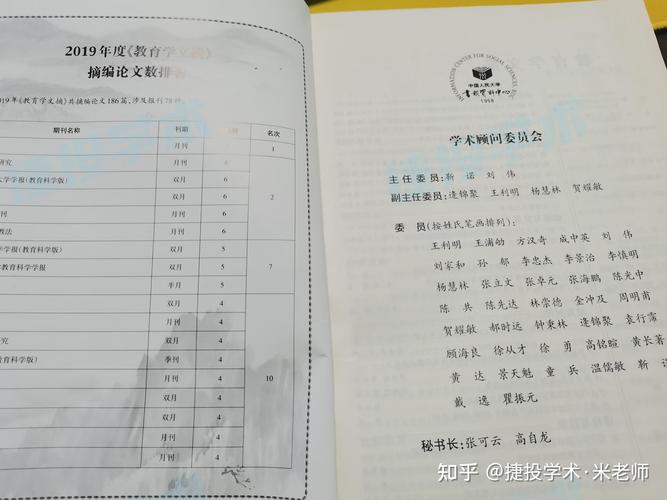 2019年度《教育学文摘》
摘编论文数排名
2019年《教育学文摘》共摘编论文186篇,涉及报刊78种。
期刊名称 刊期 名次
月刊 1
研究 月刊 6
大学学报(教育科学版) 双月 6
双月 6 2
刊 月刊 6
教法 月刊 6
学报(教育科学版) 双月 5
教育科学学报 双月 5 7
半月 5
双月 4
月刊 4
研究 双月 4
教育科学版) 季刊 4
月刊 4 10
双月 4
双月 4
月刊 4
月刊 4
INFORMATION CENTER FOR SOCIAL SCIENCES, RUC
中国人民大学
书报资料中心
1958
学术顾问委员会
主任委员:靳 诺 刘 伟
副主任委员:逄锦聚 王利明 杨慧林 贺耀敏
委 员(按姓氏笔画排列):
王利明 王浦劬 方汉奇 成中英 刘 伟
刘家和 孙 郁 李忠杰 李景治 李慎明
杨慧林 张立文 张卓元 张海鹏 陈光中
陈 共 陈先达 林崇德 金冲及 周明甫
贺耀敏 郝时远 钟秉林 逄锦聚 袁行霈
顾海良 徐从才 徐 勇 高铭暄 黄长著
黄 达 景天魁 童 兵 温儒敏 靳 诺
戴 逸 瞿振元
秘书长:张可云 高自龙
知乎 @捷投学术·米老师